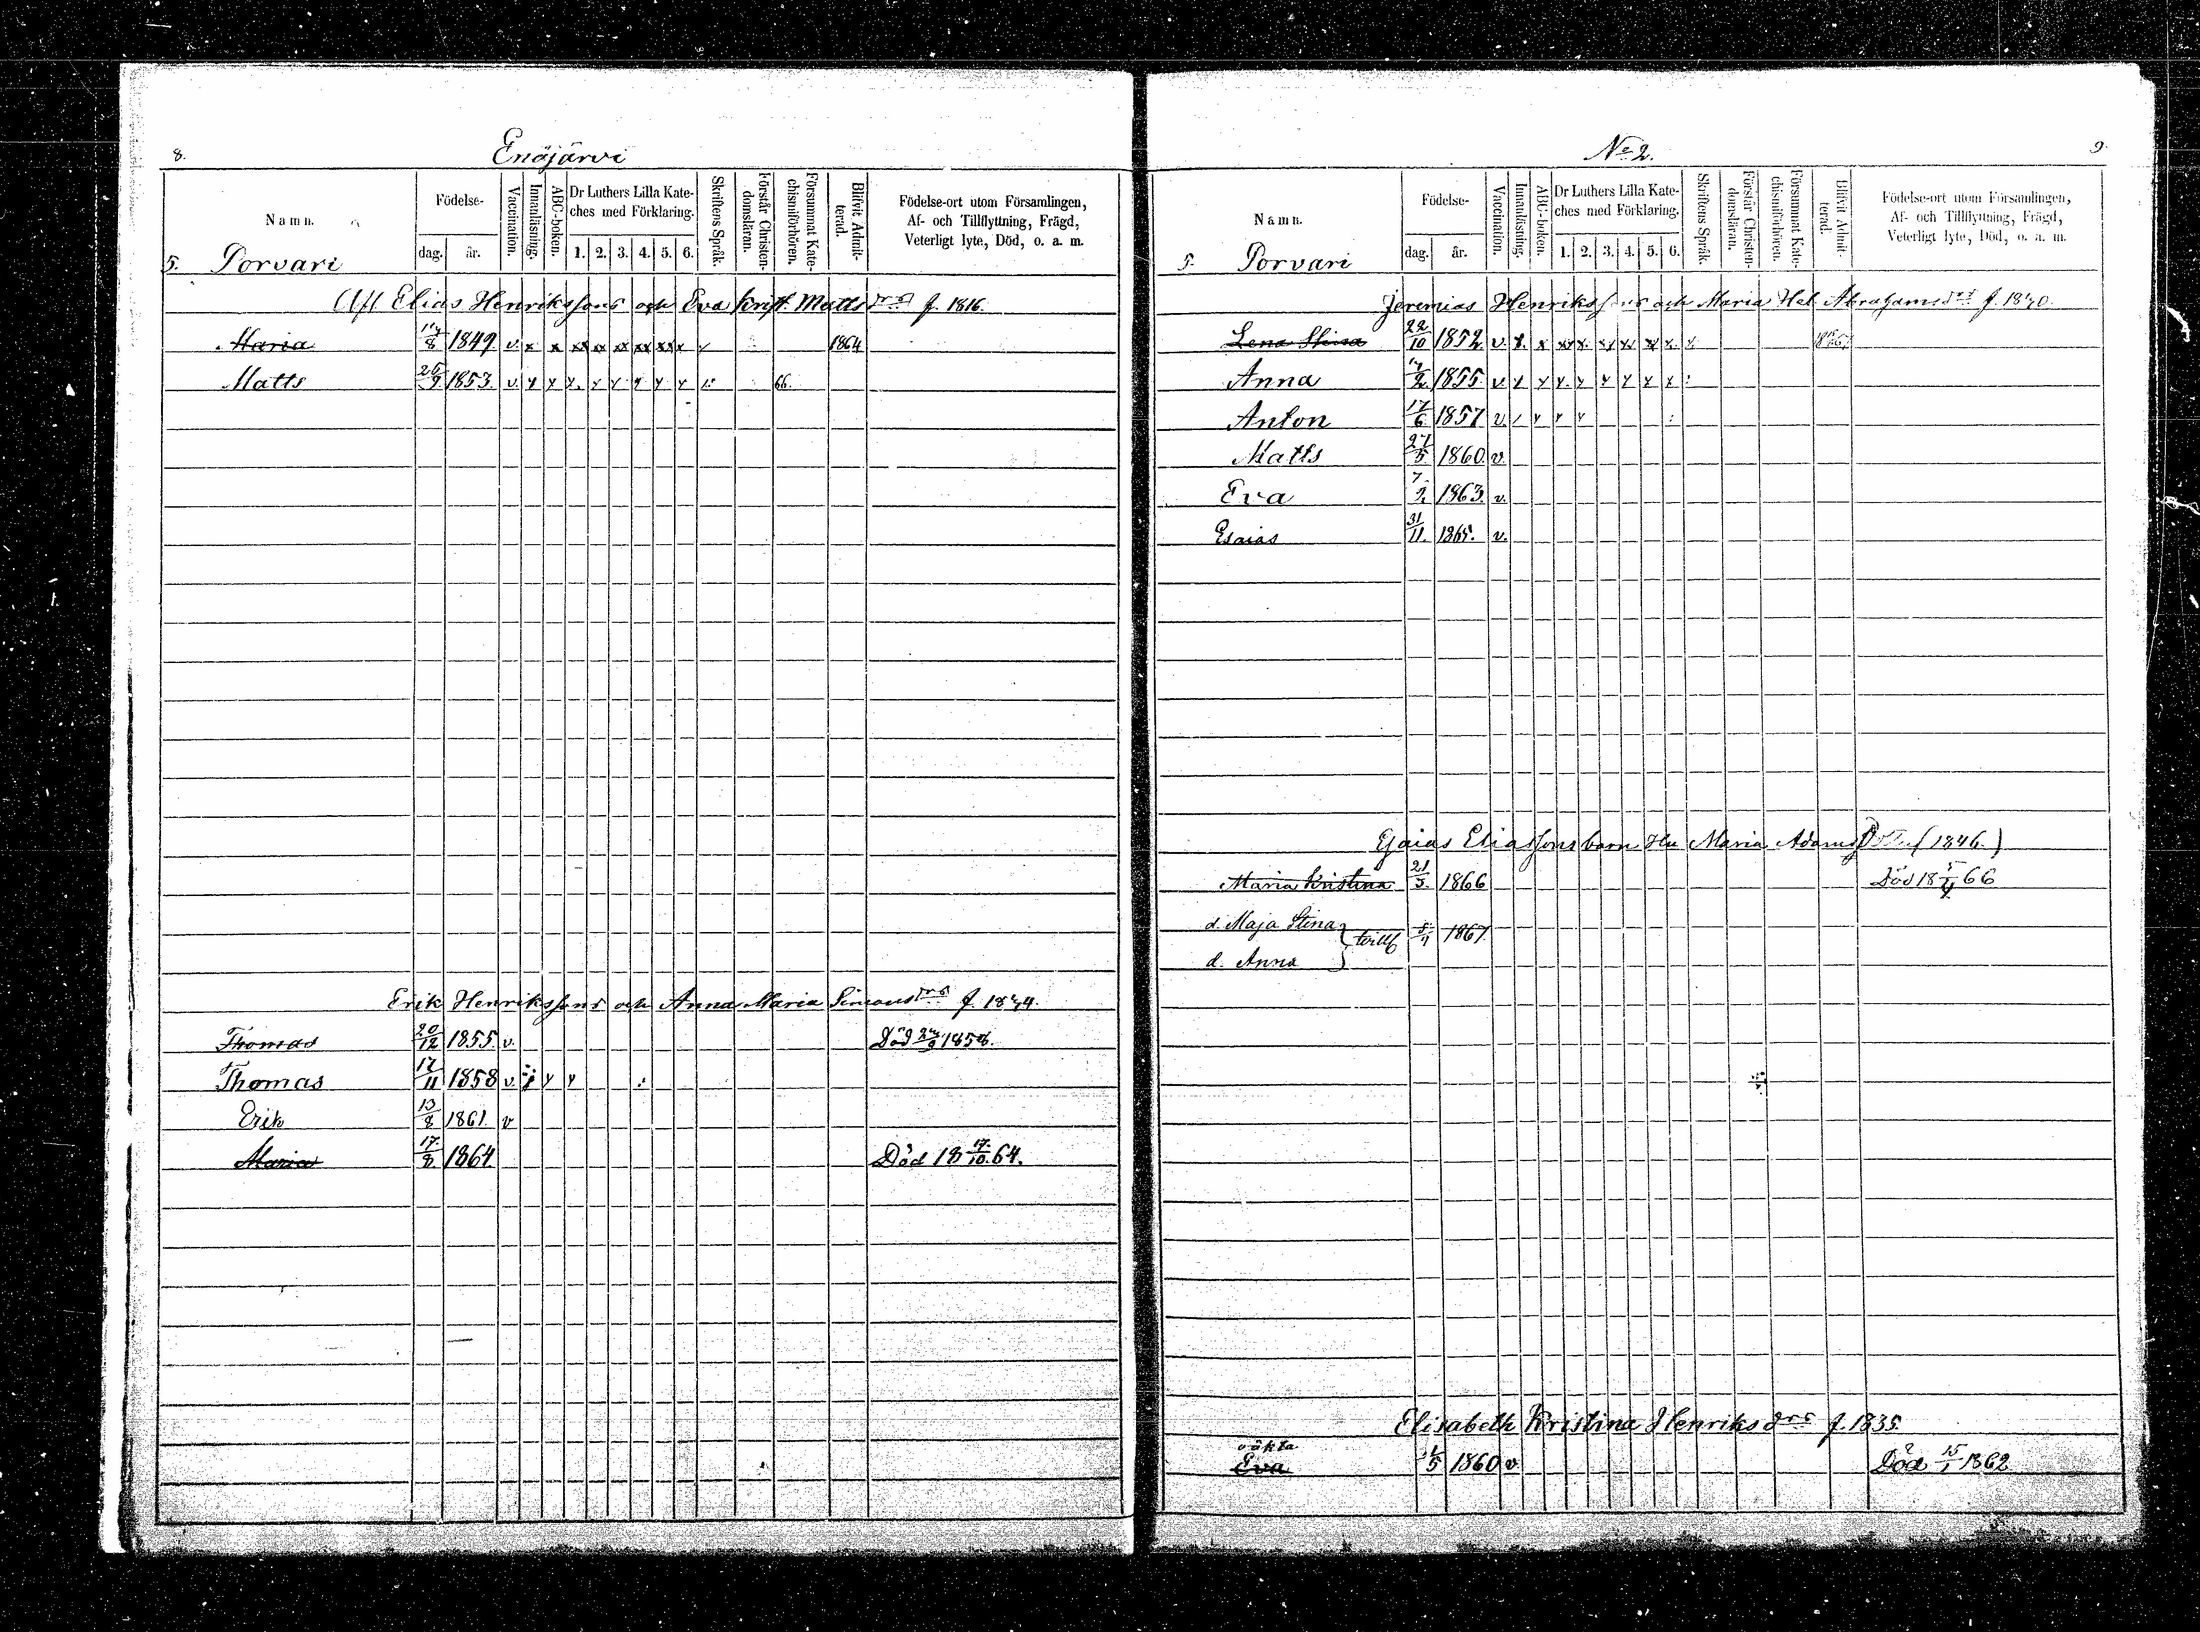 8.
Enäjärvi
Namn.
Födelse-
dag.
år.
Vaccination.
Innanläsning.
ABC-boken.
Dr Luthers Lilla Kate-
ches med Förklaring.
1. 2. 3. 4. 5. 6.
Skriftens Språk.
Förstår Christen-
domsläran.
Försummat Kate-
chismiförhören.
Blifvit Admit-
terad.
Födelse-ort utom Församlingen,
Af- och Tillflyttning, Frägd,
Veterligt lyte, Död, o. a. m.
5. Porvari
Elias Henrikssons och Eva Krist. Matts drs f. 1816.
Maria 8 1849 v. x x xx xx xx xx xx x 1864
Matts 26/9 1853. v. x x x. x x x x x 66.
Erik Henrikssons och Anna Maria Simons drs f.
Thomas 20/12 1855. v. Död
Thomas 17/11 1858 v. x x
Erik 13/8 1861. v
Maria 17/8 1864 Död 18 17/10 64.
No 2.
9.
Namn.
Födelse-
dag.
år.
Vaccination.
Innanläsning.
ABC-boken.
Dr Luthers Lilla Kate-
ches med Förklaring.
1. 2. 3. 4. 5. 6.
Skriftens Språk.
Förstår Christen-
domsläran.
Försummat Kate-
chismiförhören.
Blifvit Admit-
terad.
Födelse-ort utom Församlingen,
Af- och Tillflyttning, Frägd,
Veterligt lyte, Död, o. a. m.
5. Porvari
Jeremias Henrikssons och Maria Hel. Abrahams drs f.
Lena Stina 22/10 1852 v. x. x xx x. xx xx xx x. x
Anna 1855. v. x x x x x x x x
Anton 17/6 1857 v. x x x
Matts 27/5 1860. v.
Eva 7 1863. v.
Esaias 31/11. 1865. v.
Esaias Eliassons barn Hu Maria Adams (1846.)
Maria Kristina 21/3. 1866 Död 18 66
d. Maja Stina
d. Anna } tvill 1867.
Elisabeth Kristina Henriks drs f. 1835.
oäkta
Eva 5 1860 v Död 15/1 1862